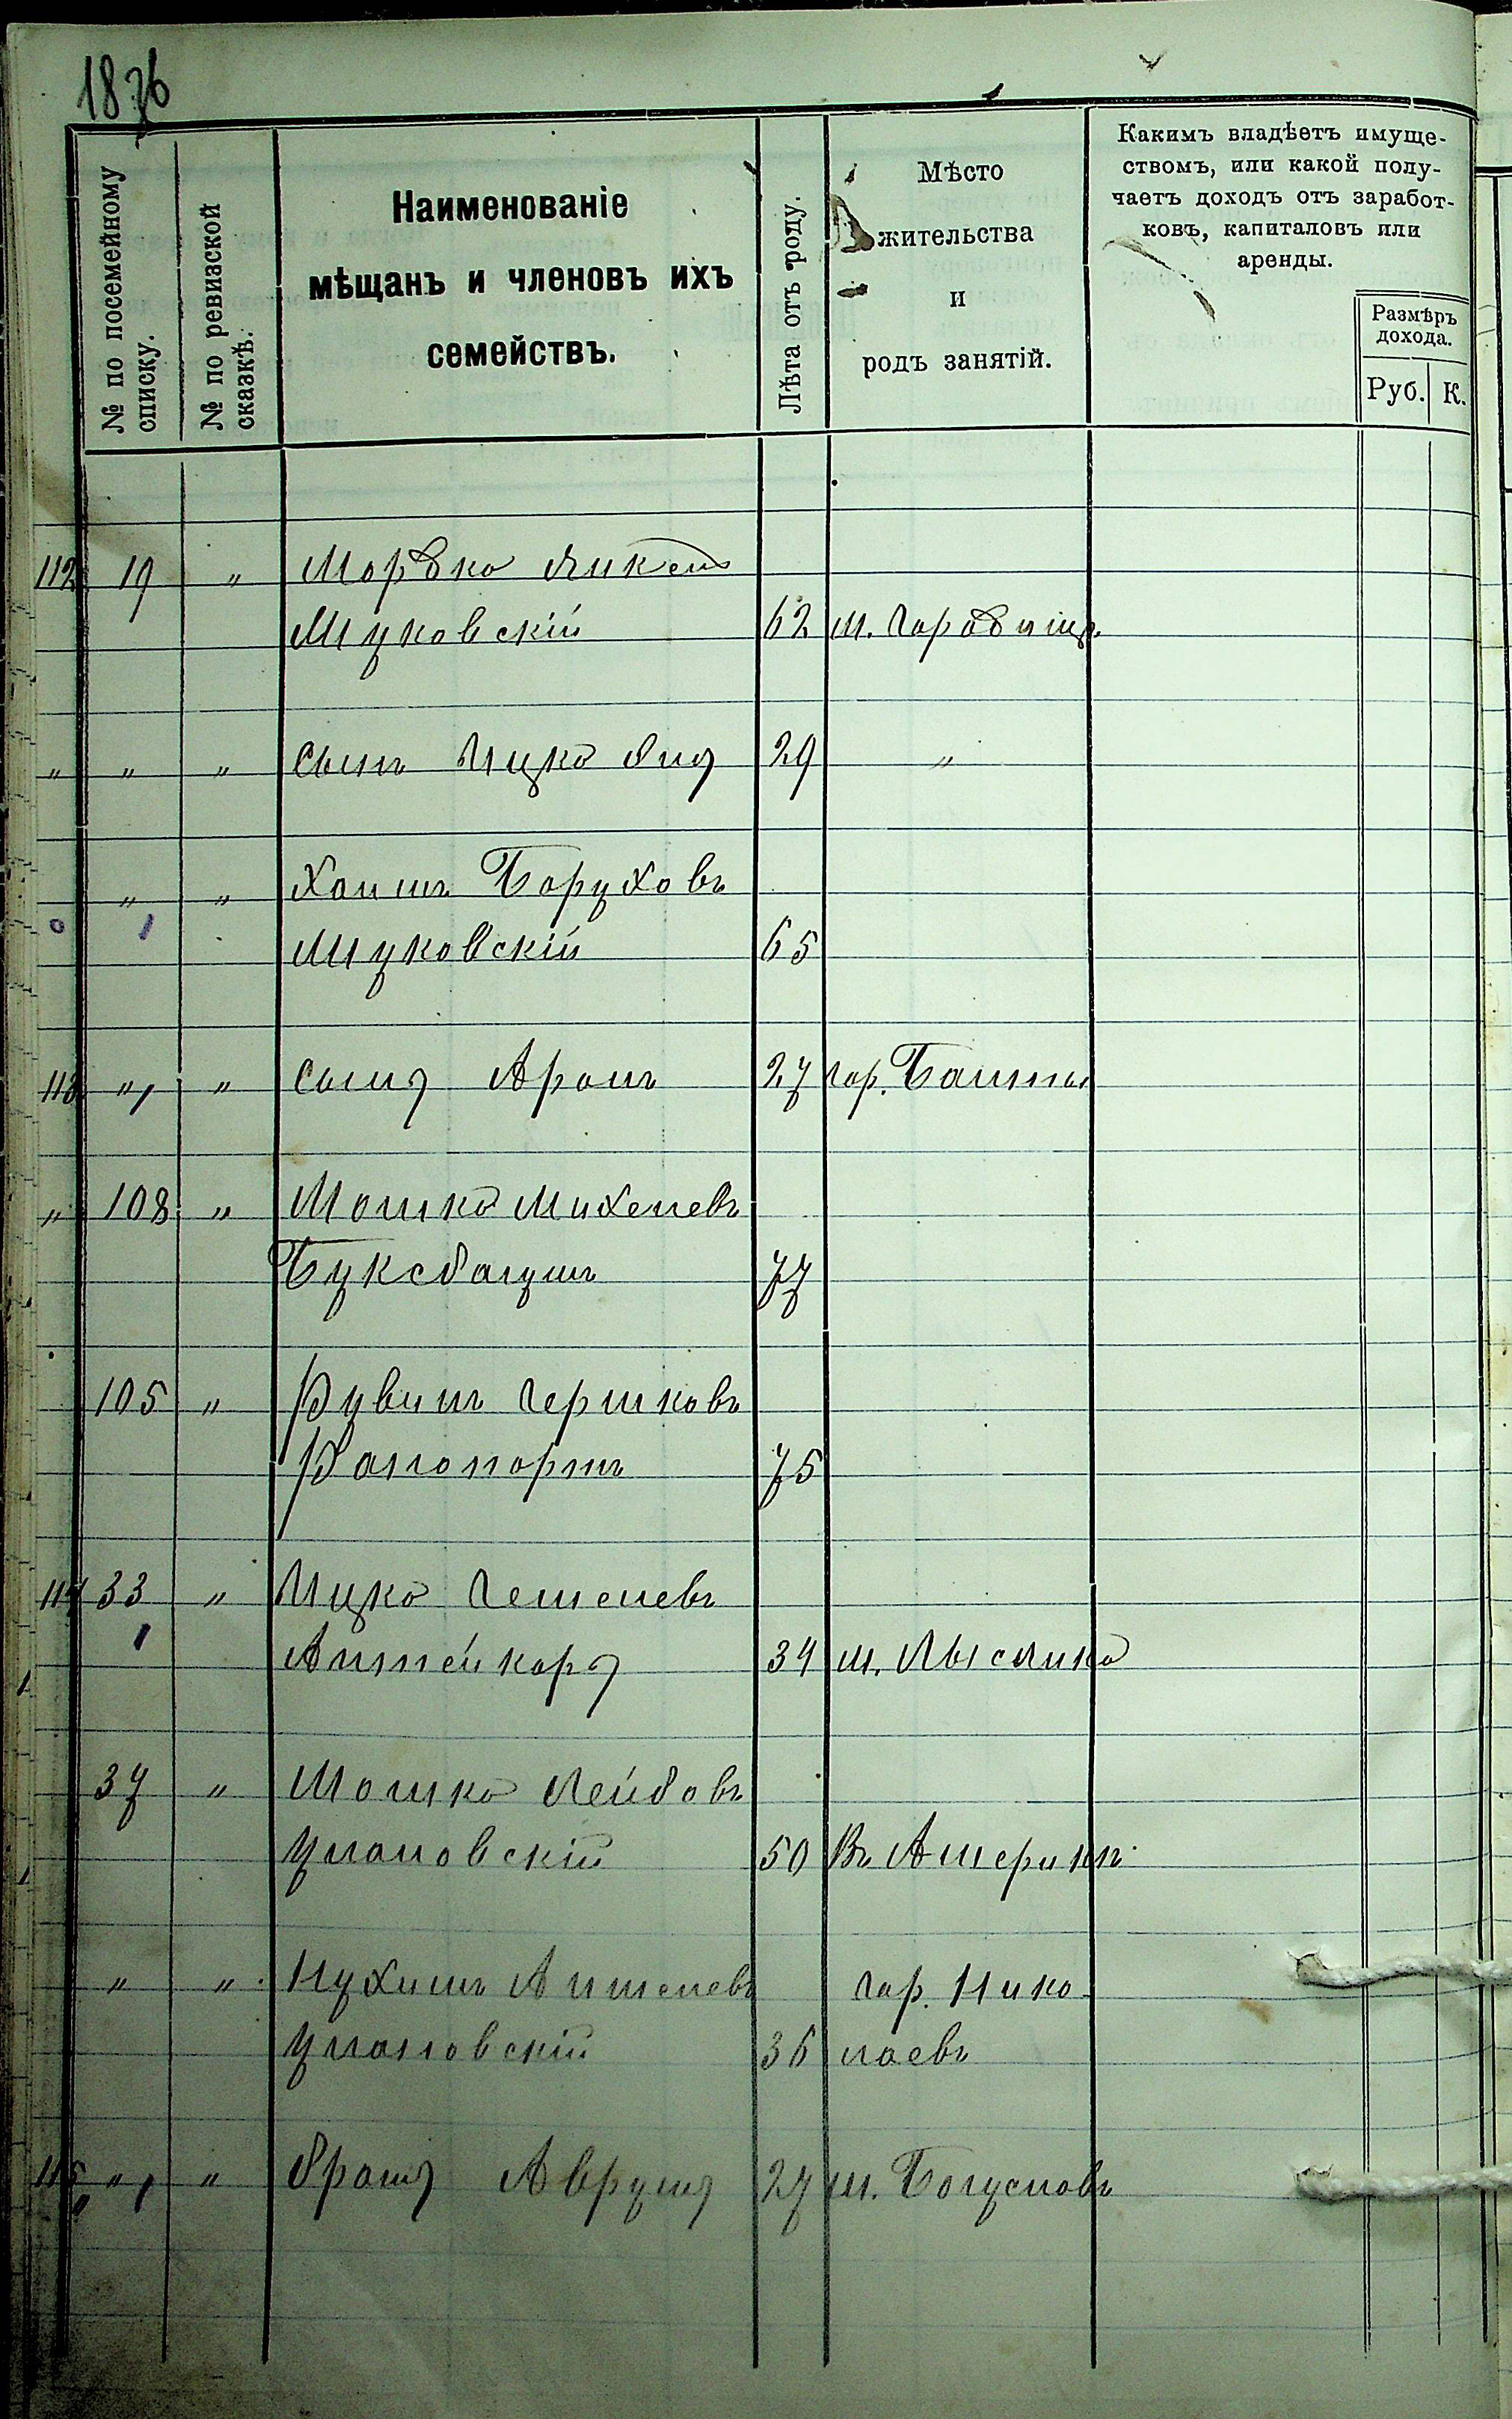 1876
№ по посемейному списку.
№ по ревизской сказкѣ.
Наименованіе
мѣщанъ и членовъ ихъ
семействъ.
Лѣта отъ роду.
Мѣсто
жительства
и
родъ занятій.
Какимъ владѣетъ имуще-
ствомъ, или какой полу-
чаетъ доходъ отъ заработ-
ковъ, капиталовъ или
аренды.
Размѣръ
дохода.
Руб. К.
112 19 " Мордко
Мучковскій 62 м. Городище
" " " Сынъ Ицко 29 "
" " Хаимъ Боруховъ
Мучковскій 65
113 " " Сынъ Аронъ 27 гор. Балта
" 108 " Мошко Михелевъ
Буксбаумъ 77
105 " Рувинъ Гершковъ
Рапопортъ 75
114 33 " Ицко Гешелевъ
34 м. Лысянка
37 " Мошко Лейбовъ
Улановскій 50 Въ Америкѣ
" " Нухимъ Аншелевъ гор. Нико
Улановскій 36 лаевъ
115 " " братъ Аврумъ 27 м. Богуславъ